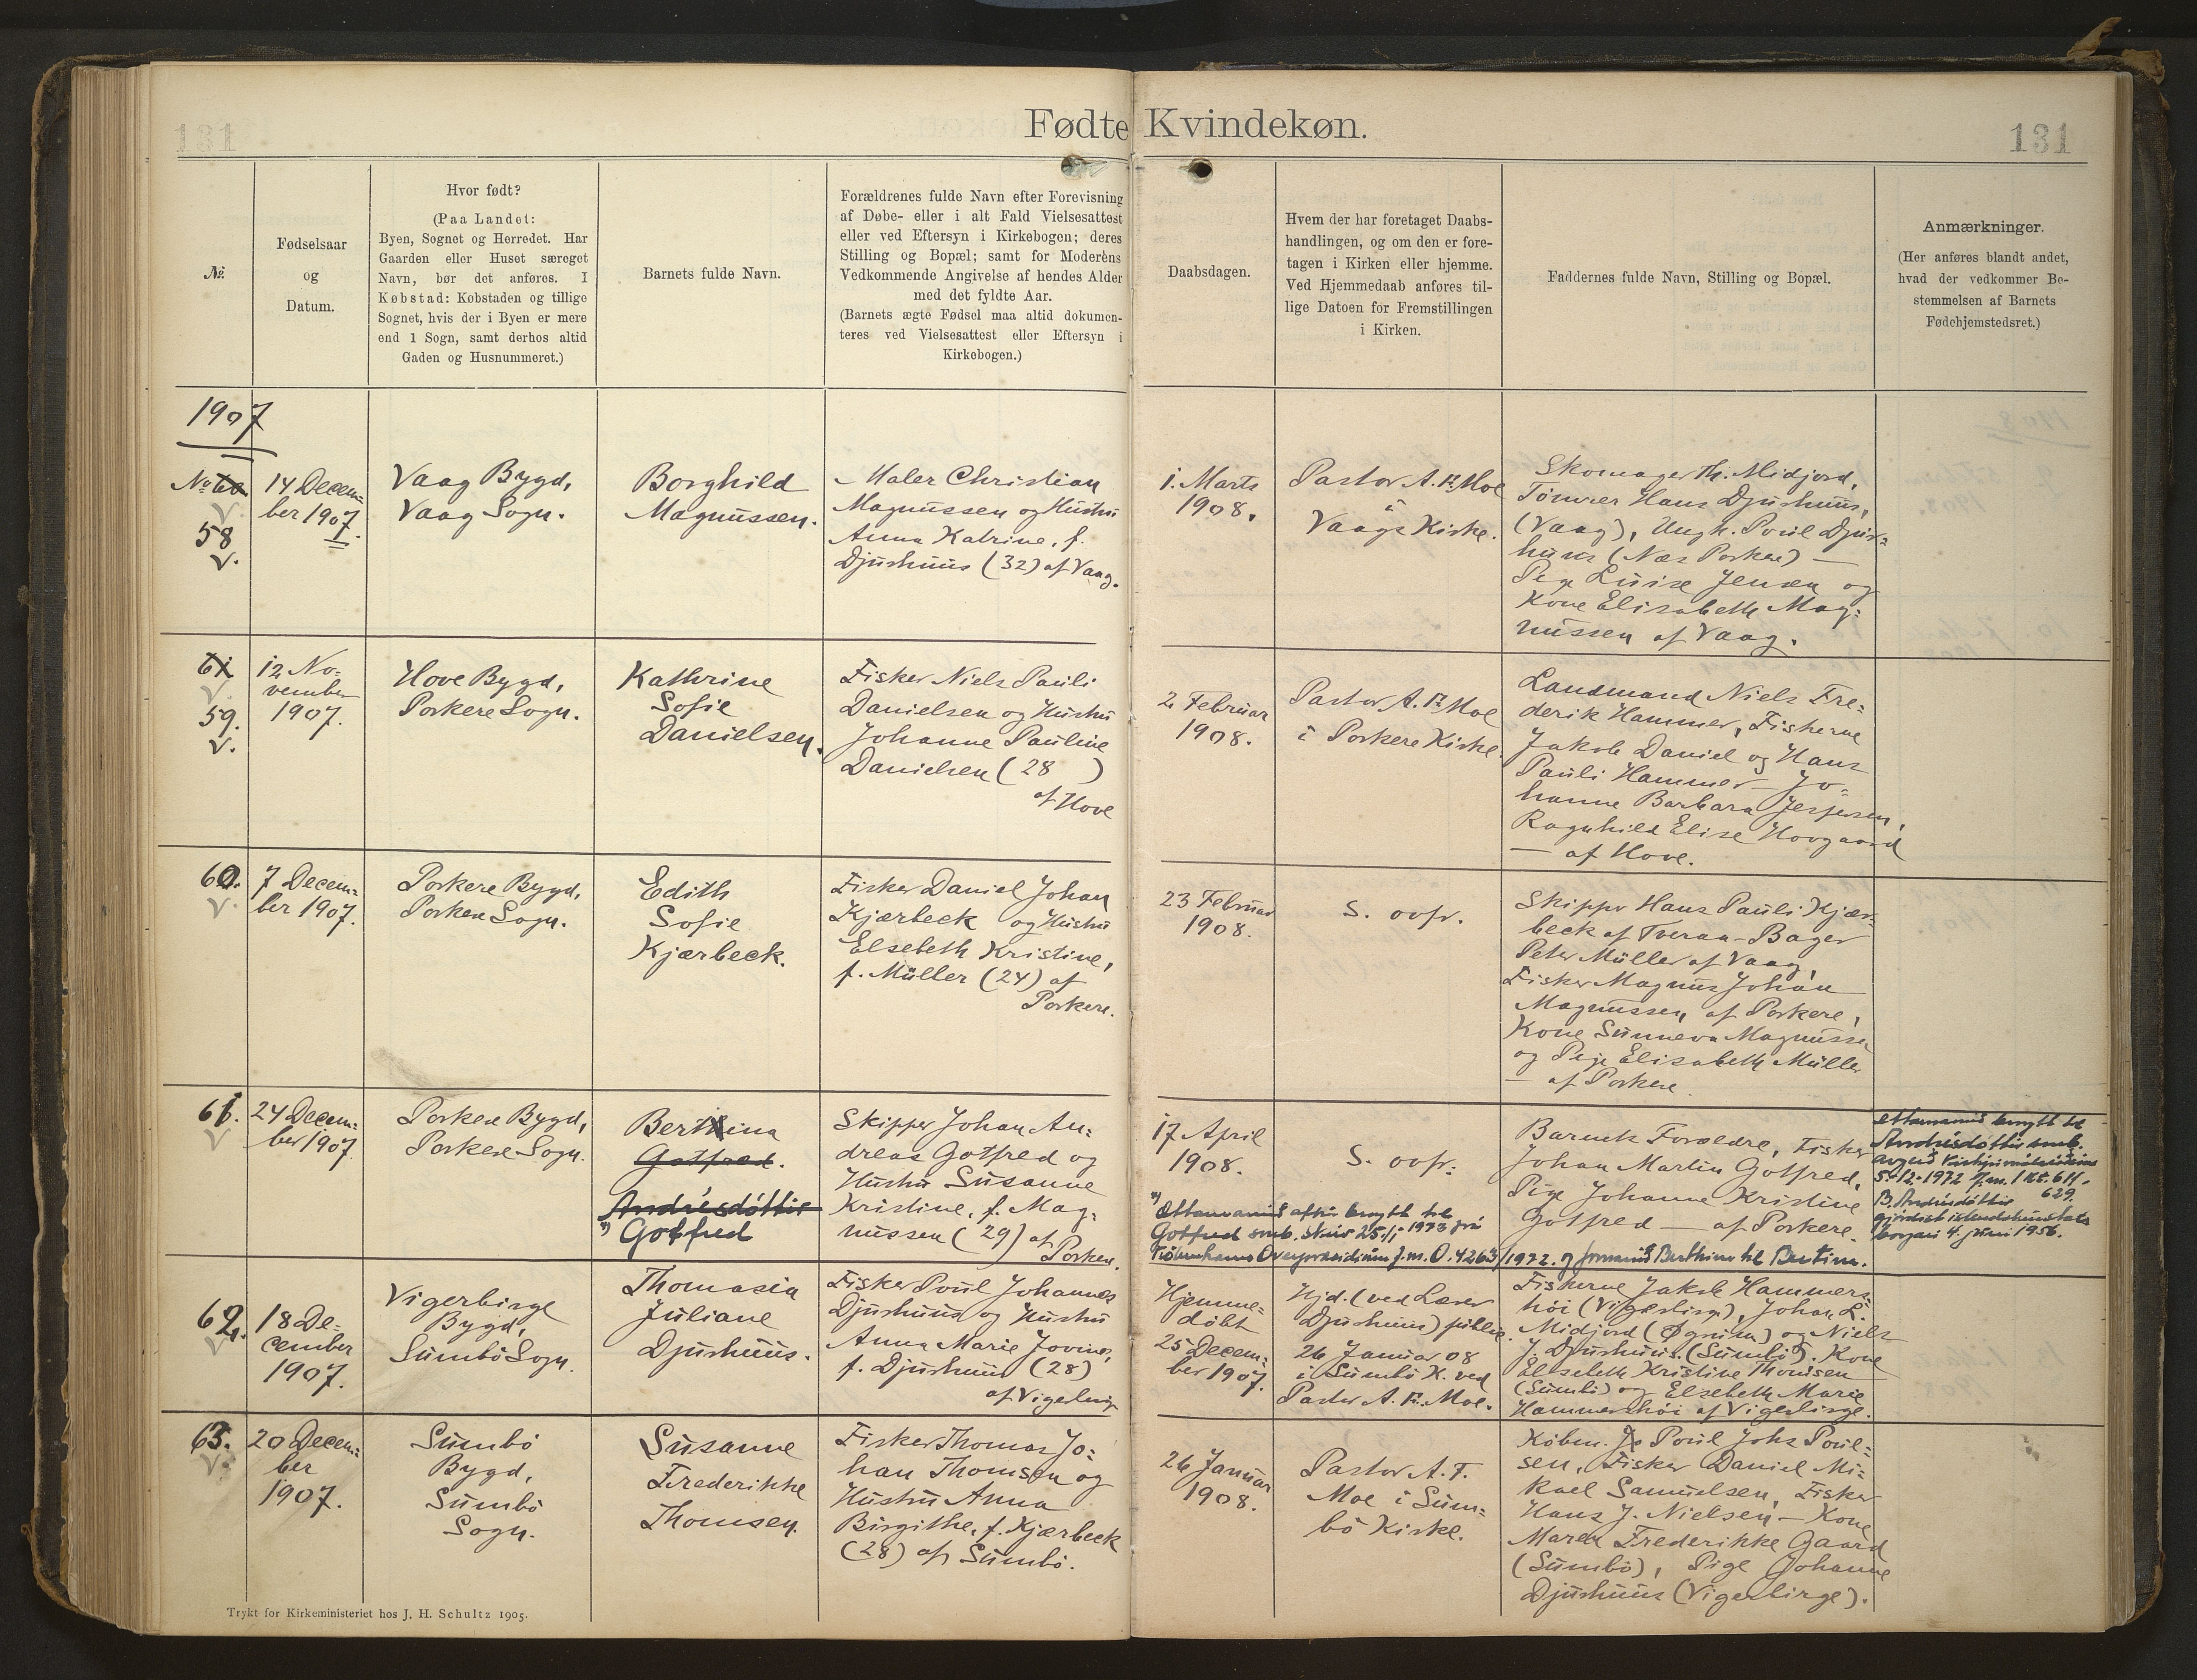 131
Fødte Kvindekøn.
131
№
Fødselsaar
og
Datum.
Hvor født?
(Paa Landet:
Byen, Sognet og Herredet. Har
Gaarden eller Huset særeget
Navn, bør det anføres. I
Købstad: Købstaden og tillige
Sognet, hvis der i Byen er mere
end 1 Sogn, samt derhos altid
Gaden og Husnummeret.)
Barnets fulde Navn.
Forældrenes fulde Navn efter Forevisning
af Døbe- eller i alt Fald Vielsesattest
eller ved Eftersyn i Kirkebogen; deres
Stilling og Bopæl; samt for Moderens
Vedkommende Angivelse af hendes Alder
med det fyldte Aar.
(Barnets ægte Fødsel maa altid dokumen-
teres ved Vielsesattest eller Eftersyn i
Kirkebogen.)
Daabsdagen.
Hvem der har foretaget Daabs-
handlingen, og om den er fore-
tagen i Kirken eller hjemme.
Ved Hjemmedaab anføres til-
lige Datoen for Fremstillingen
i Kirken.
Faddernes fulde Navn, Stilling og Bopæl.
Anmærkninger.
(Her anføres blandt andet,
hvad der vedkommer Be-
stemmelsen af Barnets
Fødehjemstedsret.)
1907
No 60
58
v.
14 Decem=
ber 1907.
Vaag Bygd,
Vaag Sogn.
Borghild
Magnussen.
Maler Christian
Magnussen og Hustru
Anna Katrine, f.
Djurhuus (32) af Vaag.
1. Marts
1908.
Pastor A. F. Moe
i
Vaags Kirke.
Skomager Th. Midjord,
Tømrer Hans Djurhuus,
(Vaag), Ungk. Poul Djur=
huus (Næs Porkere) —
Pige Luise Jensen og
Kone Elisabeth Mag=
nussen af Vaag.
61
v.
59.
v.
12 No-
vember
1907.
Hove Bygd,
Porkere Sogn.
Kathrine
Sofie
Danielsen.
Fisker Niels Pauli
Danielsen og Hustru
Johanne Pauline
Danielsen (28 )
af Hove
2. Februar
1908.
Pastor A. F. Moe
i Porkere Kirke.
Landmand Niels Fre=
derik Hammer, Fiskerne
Jakob Daniel og Hans
Pauli Hammer — Jo=
hanne Barbara Jespersen,
Ragnhild Elise Hovgaard
— af Hove.
60.
v.
7 Decem=
ber 1907.
Porkere Bygd,
Porkere Sogn.
Edith
Sofie
Kjærbeck.
Fisker Daniel Johan
Kjærbeck og Hustru
Elsebeth Kristine,
f. Müller (24) af
Porkere.
23 Februar
1908.
S. ovfr.
Skipper Hans Pauli Kjær=
beck af Tveraa — Bager
Peter Müller af Vaag,
Fisker Magnus Johan
Magnussen af Porkere,
Kone Sunneva Magnussen
og Pige Elisabeth Müller
— af Porkere.
61.
v
24 Decem=
ber 1907.
Porkere Bygd,
Porkere Sogn.
Berthina
Gotfred.
Andrésdóttir
*) Gotfred
Skipper Johan An=
dreas Gotfred og
Hustru Susanne
Kristine, f. Mag=
nussen (29) af
Porkere.
17 April
1908.
S. ovfr.
Barnets Forældre, Fisker
Johan Martin Gotfred,
Pige Johanne Kristine
Gotfred — af Porkere.
Ættarnavnið broytt til
Andrésdóttir smb.
5.-12.-1972 J.m. 1 nr. 611.
629.
B. Andrésdóttir
borgari 4. juni 1956.
*) Ættarnavnið aftur broytt til
Gotfred smb. skriv 25./1.-1973 frá
Københavns Overpræsidium J.m. O. 4263/1972. og fornavnið Berthina til Bertina.
62.
v
18 De-
cember
1907.
Vigerbirge
Bygd,
Sumbö Sogn.
Thomasia
Juliane
Djurhuus.
Fisker Poul Johannes
Djurhuus og Hustru
Anna Marie Jovine,
f. Djurhuus (28)
af Vigerbirge
Hjemme=
döbt
25 Decem=
ber 1907.
Hjd. (ved Lærer
Djurhuus) public.
26 Januar 08
i Sumbö K. ved
Pastor A. F. Moe.
Fiskerne Jakob Hammers=
höi (Vigerbirge), Johan L.
Midjord (Øgnisen) og Niels
J. Djurhuus. (Sumbö). Kone
Elsebeth Kristine Thomsen
(Sumbö) og Elsebeth Marie
Hammershöi af Vigerbirge.
63.
v.
20 Decem=
ber
1907.
Sumbö
Bygd,
Sumbö
Sogn.
Susanne
Frederikke
Thomsen.
Fisker Thomas Jo=
han Thomsen og
Hustru Anna
Birgithe, f. Kjærbeck
(28) af Sumbö.
26 Januar
1908.
Pastor A. F.
Moe i Sum=
bö Kirke.
Købm. Poul Johs Poul=
sen, Fisker Daniel Mi=
kael Samuelsen, Fisker
Hans J. Nielsen — Kone
Maren Frederikke Gaard
(Sumbö), Pige Johanne
Djurhuus (Vigerbirge).
Trykt for Kirkeministeriet hos J. H. Schultz 1905.